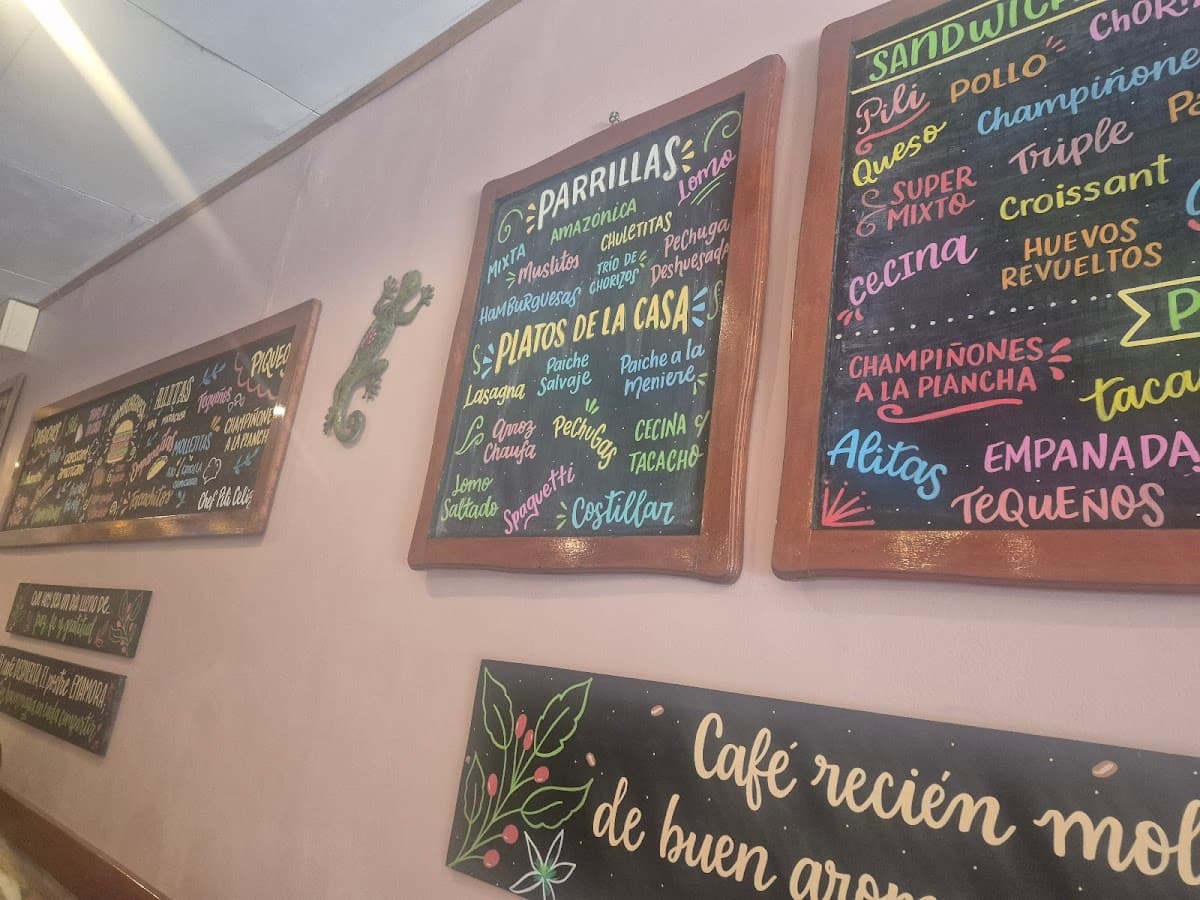 PARRILLAS
MIXTA AMAZÓNICA Lomo
Muslitos CHULETITAS
HAMBURGUESAS TRÍO DE CHORIZOS Pechuga Deshuesada
PLATOS DE LA CASA
Lasagna Paiche Salvaje Paiche a la Meniere
Arroz Chaufa PeCHuGas CECINA c/ TACACHO
Lomo Saltado Spaguetti Costillar
SANDWICH
Pili POLLO CHORIZ
Queso Champiñone
SUPER MIXTO Triple
CeCiNA Croissant
HUEVOS REVUELTOS
CHAMPIÑONES
A LA PLANCHA
taca
Alitas EMPANADA
TeQUEÑOS
Café recién mol
de buen arom
ALITAS PIQUEO
Tequeños
CHAMPIÑONES
A LA PLANCHA
MOLLEJITAS
Chef Pili Celis
QUE HOY SEA UN DÍA LLENO DE
paz, fe y gratitud
DESPIERTA, El postre ENAMORA,